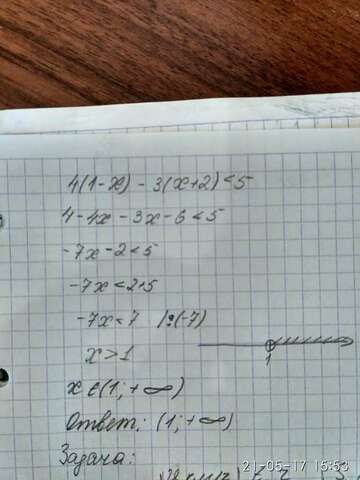 4(1-x) - 3(x+2) < 5
4 - 4x - 3x - 6 < 5
-7x - 2 < 5
-7x < 2+5
-7x < 7 |:(-7)
x > 1
1
x ∈ (1; +∞)
Ответ: (1; +∞)
Задача:
21-05-17 15:53